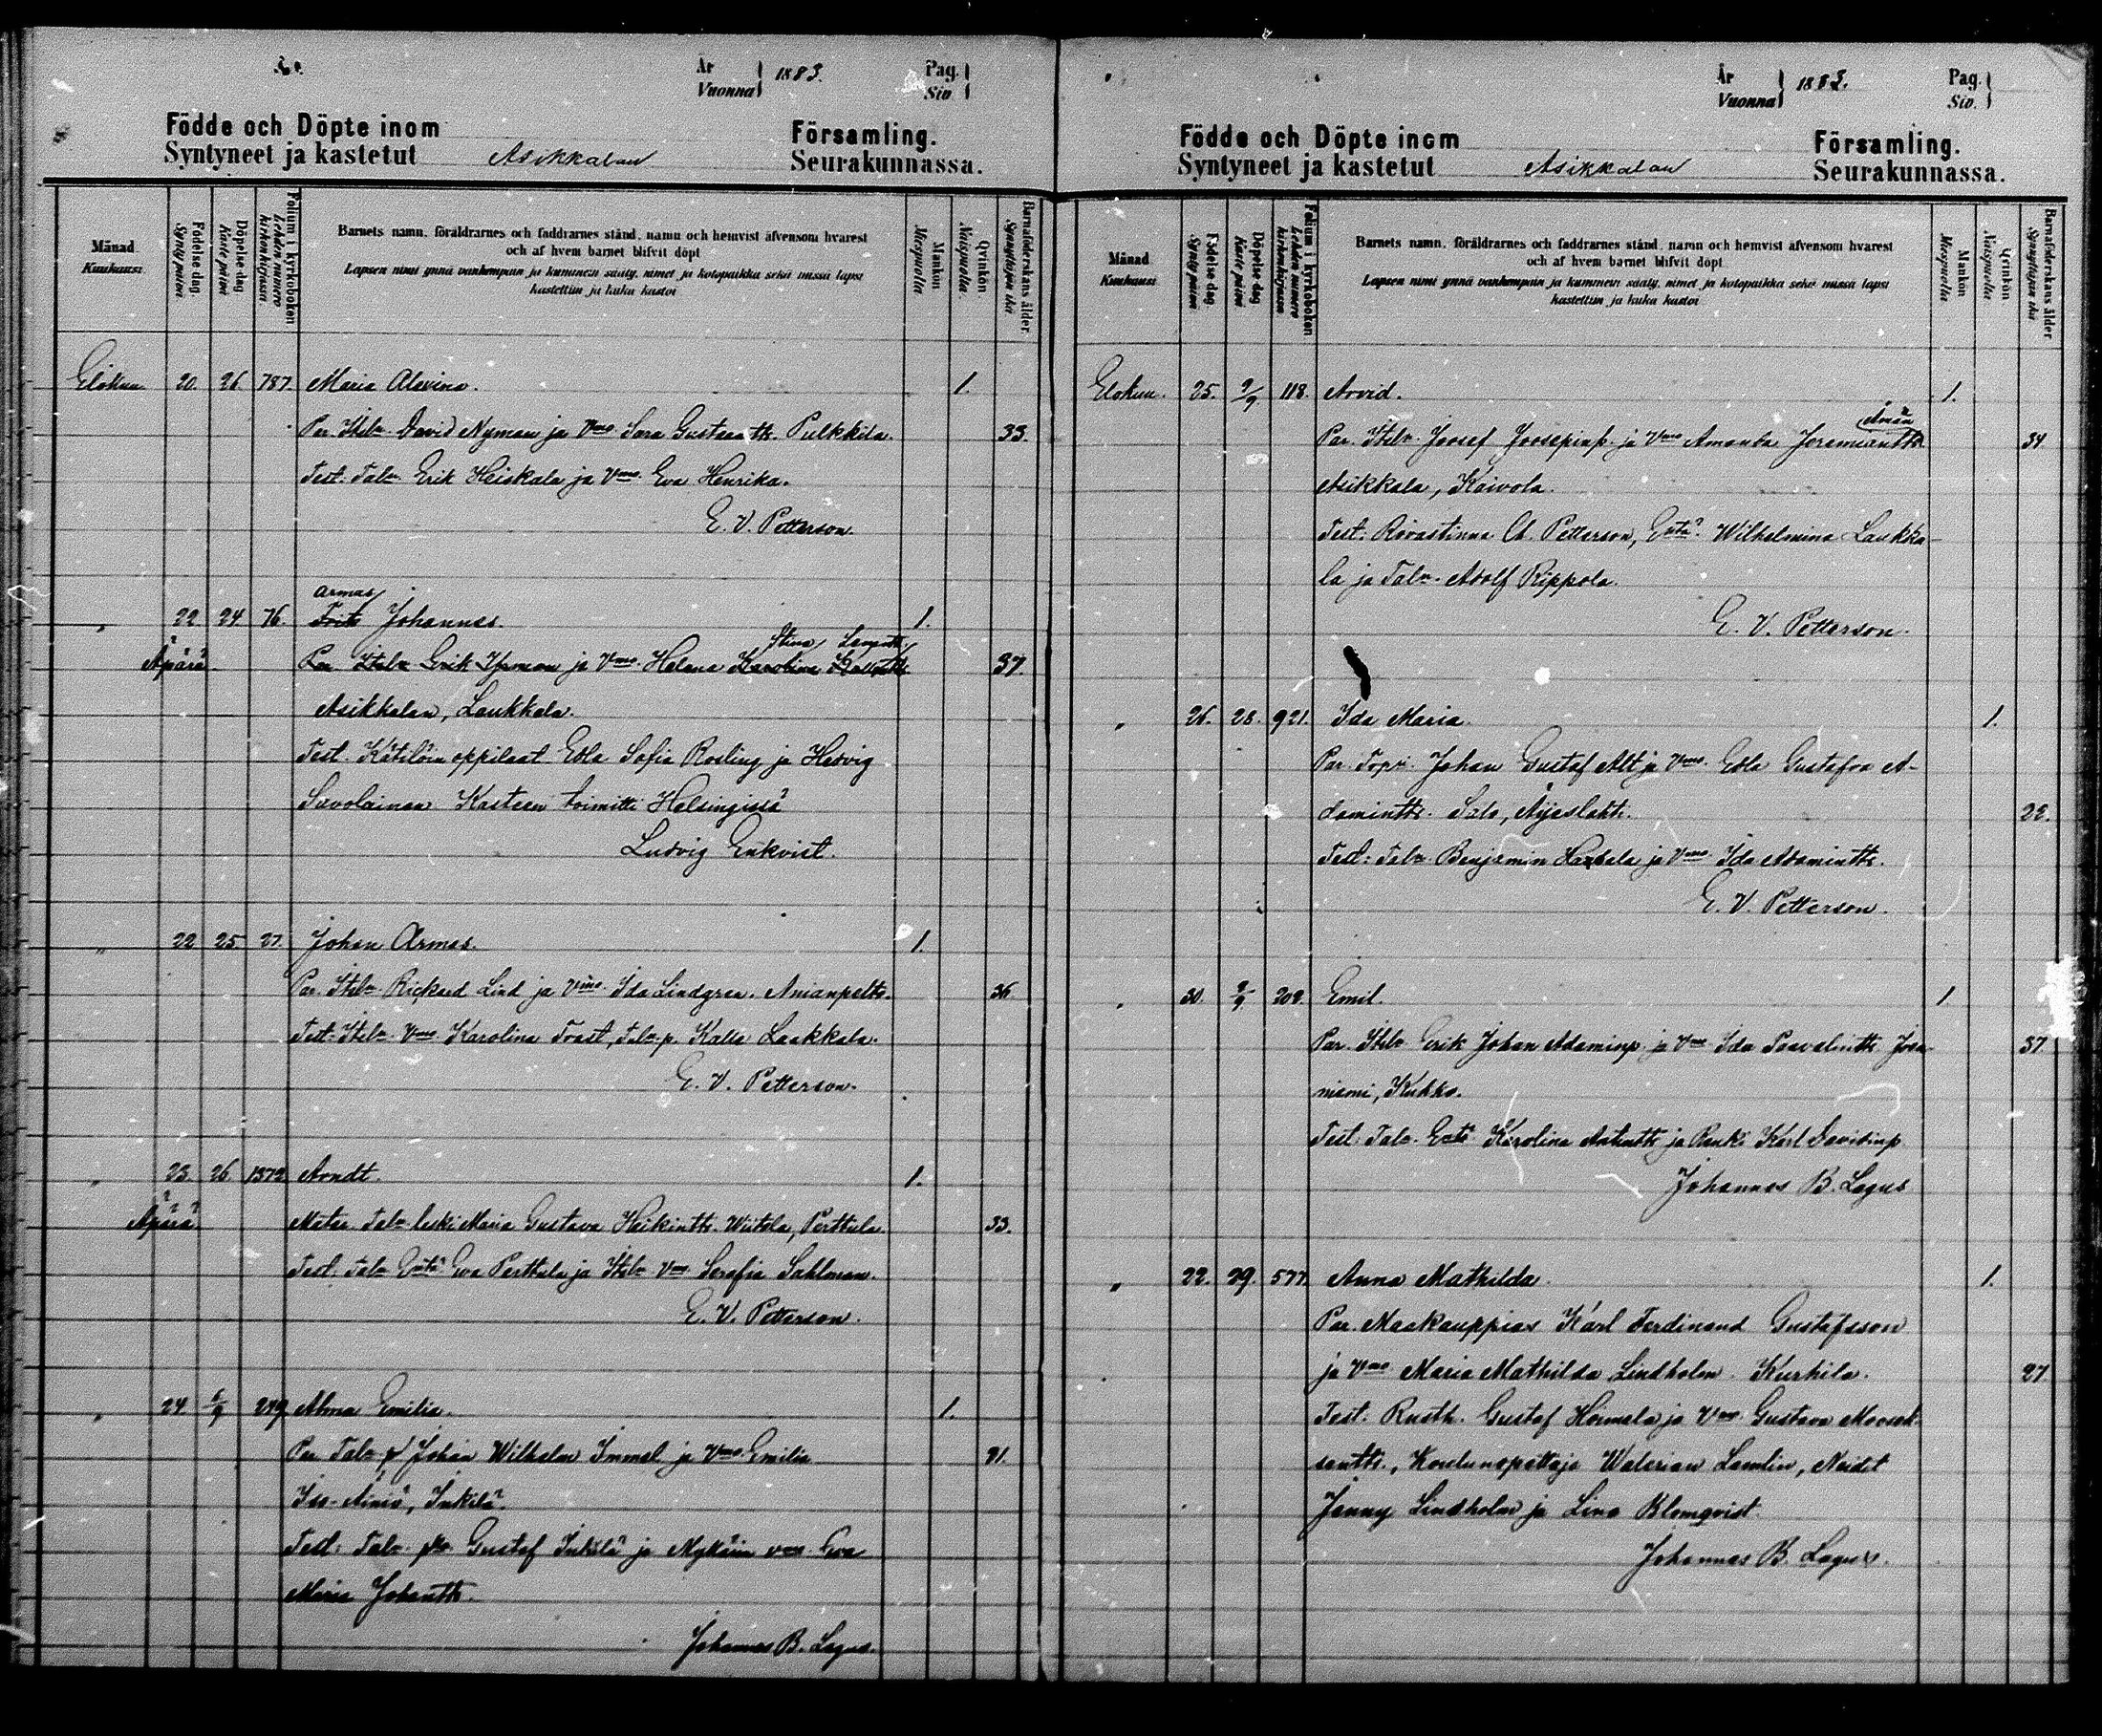 År
Vuonna 1883.
Pag.
Siv.
Födde och Döpte inom
Syntyneet ja kastetut Asikkalan
Församling.
Seurakunnassa.
Månad
Kuukausi
Födelse dag.
Synty päivä
Döpelse dag
Kaste päivä
Folium i kyrkoboken
Lehden numero kirkonkirjassa
Barnets namn, föräldrarnes och faddrarnes stånd, namn och hemvist äfvensom hvarest
och af hvem barnet blifvit döpt
Lapsen nimi ynnä vanhempain ja kummein sääty, nimet ja kotopaikka sekä missä lapsi
kastettiin ja kuka kastoi
Mankön
Miespuolia
Qvinkön.
Naispuolia.
Barnaföderskans ålder.
Synnyttäjän ikä
Elokuu 20. 26. 787. Maria Alavina. 1.
Par. Itsln. David Nyman ja Vmo. Sara Gustaantr. Pulkkila. 33.
Test: Taln. Erik Heiskala ja Vmo. Eva Henrika.
E. V. Petterson.
Armas
" 22 24 76. Johannes. 1.
Stina
Äpärä. Par. Itsln. Erik ja Vmo. Helena Karolina 37.
Asikkalan, Laukkala.
Test. Kätilöin oppilaat Edla Sofia Rosling ja Hedvig
Savolainen Kasteen toimitti Helsingissä
Ludvig Enkvist.
" 22 25 27. Johan Armas. 1.
Par. Itsln. Rickard Lind ja Vmo. Ida Lindgren. Anianpelto. 36.
Test: Itsln. Vmo. Karolina Trast, Taln. p. Kalle Laakkala.
E. V. Petterson.
" 23. 26. 1372 Arndt. 1.
Äpärä Mater Taln. leski Maria Gustava Heikintr. Wiitala, Perttula. 33.
Test. Taln. Emtä Eva Perttula ja Itsln. Vmo. Serafia Sahlman.
E. V. Petterson.
" 24. 6/9 249 Alma Emilia. 1.
Par. Taln. p. Johan Wilhelm Immel ja Vmo. Emilia 21.
Iso-Äiniö, Inkilä.
Test: Taln. Gustaf Inkilä ja vmo. Eva
Maria Johantr.
Johannes B. Lagus.
År
Vuonna 1883.
Pag.
Siv.
Födde och Döpte inom
Syntyneet ja kastetut Asikkalan
Församling.
Seurakunnassa.
Månad
Kuukausi
Födelse dag.
Synty päivä
Döpelse dag
Kaste päivä
Folium i kyrkoboken
Lehden numero kirkonkirjassa
Barnets namn, föräldrarnes och faddrarnes stånd, namn och hemvist äfvensom hvarest
och af hvem barnet blifvit döpt
Lapsen nimi ynnä vanhempain ja kummein sääty, nimet ja kotopaikka sekä missä lapsi
kastettiin ja kuka kastoi
Mankön
Miespuolia
Qvinkön
Naispuolia
Barnaföderskans ålder
Synnyttäjän ikä
Elokuu. 25. 2/9 118. Arvid. 1.
Par. Itsln. Joosef Joosepinp. ja Vmo Amanda Jeremiantr. 34
Asikkala, Kaivola.
Test: Rovastinna Ch. Petterson, Emtä Wilhelmina Laukka-
la ja Taln. Adolf Rippola.
E. V. Petterson.
" 26. 28. 921. Ida Maria. 1.
Par. Torp. Johan Gustaf Alt ja Vmo. Edla Gustafva A-
damintr. Salo, Äijäslahti. 22.
Test: Taln. Benjamin ja Vmo. Ida Adamintr.
E. V. Petterson.
" 30. 2/9. 202. Emil. 1.
Par. Itsln. Erik Johan Adaminp. ja Vmo Ida Paavalintr. Josa- 37
niemi, Kukko.
Test: Taln. Emtä Karolina Antintr. ja Renki Karl Davidinp.
Johannes B. Lagus
" 22. 29. 577. Anna Mathilda. 1.
Par. Maakauppias Karl Ferdinand Gustafsson
ja Vmo. Maria Mathilda Lindholm. Kurhila. 27
Test: Rusth. Gustaf Hörmälä ja Vmo. Gustava Moosek-
santr., Koulunopettaja Walerian Lamlin, Neidet
Jenny Lindholm ja Lina Blomqvist.
Johannes B. Lagus.